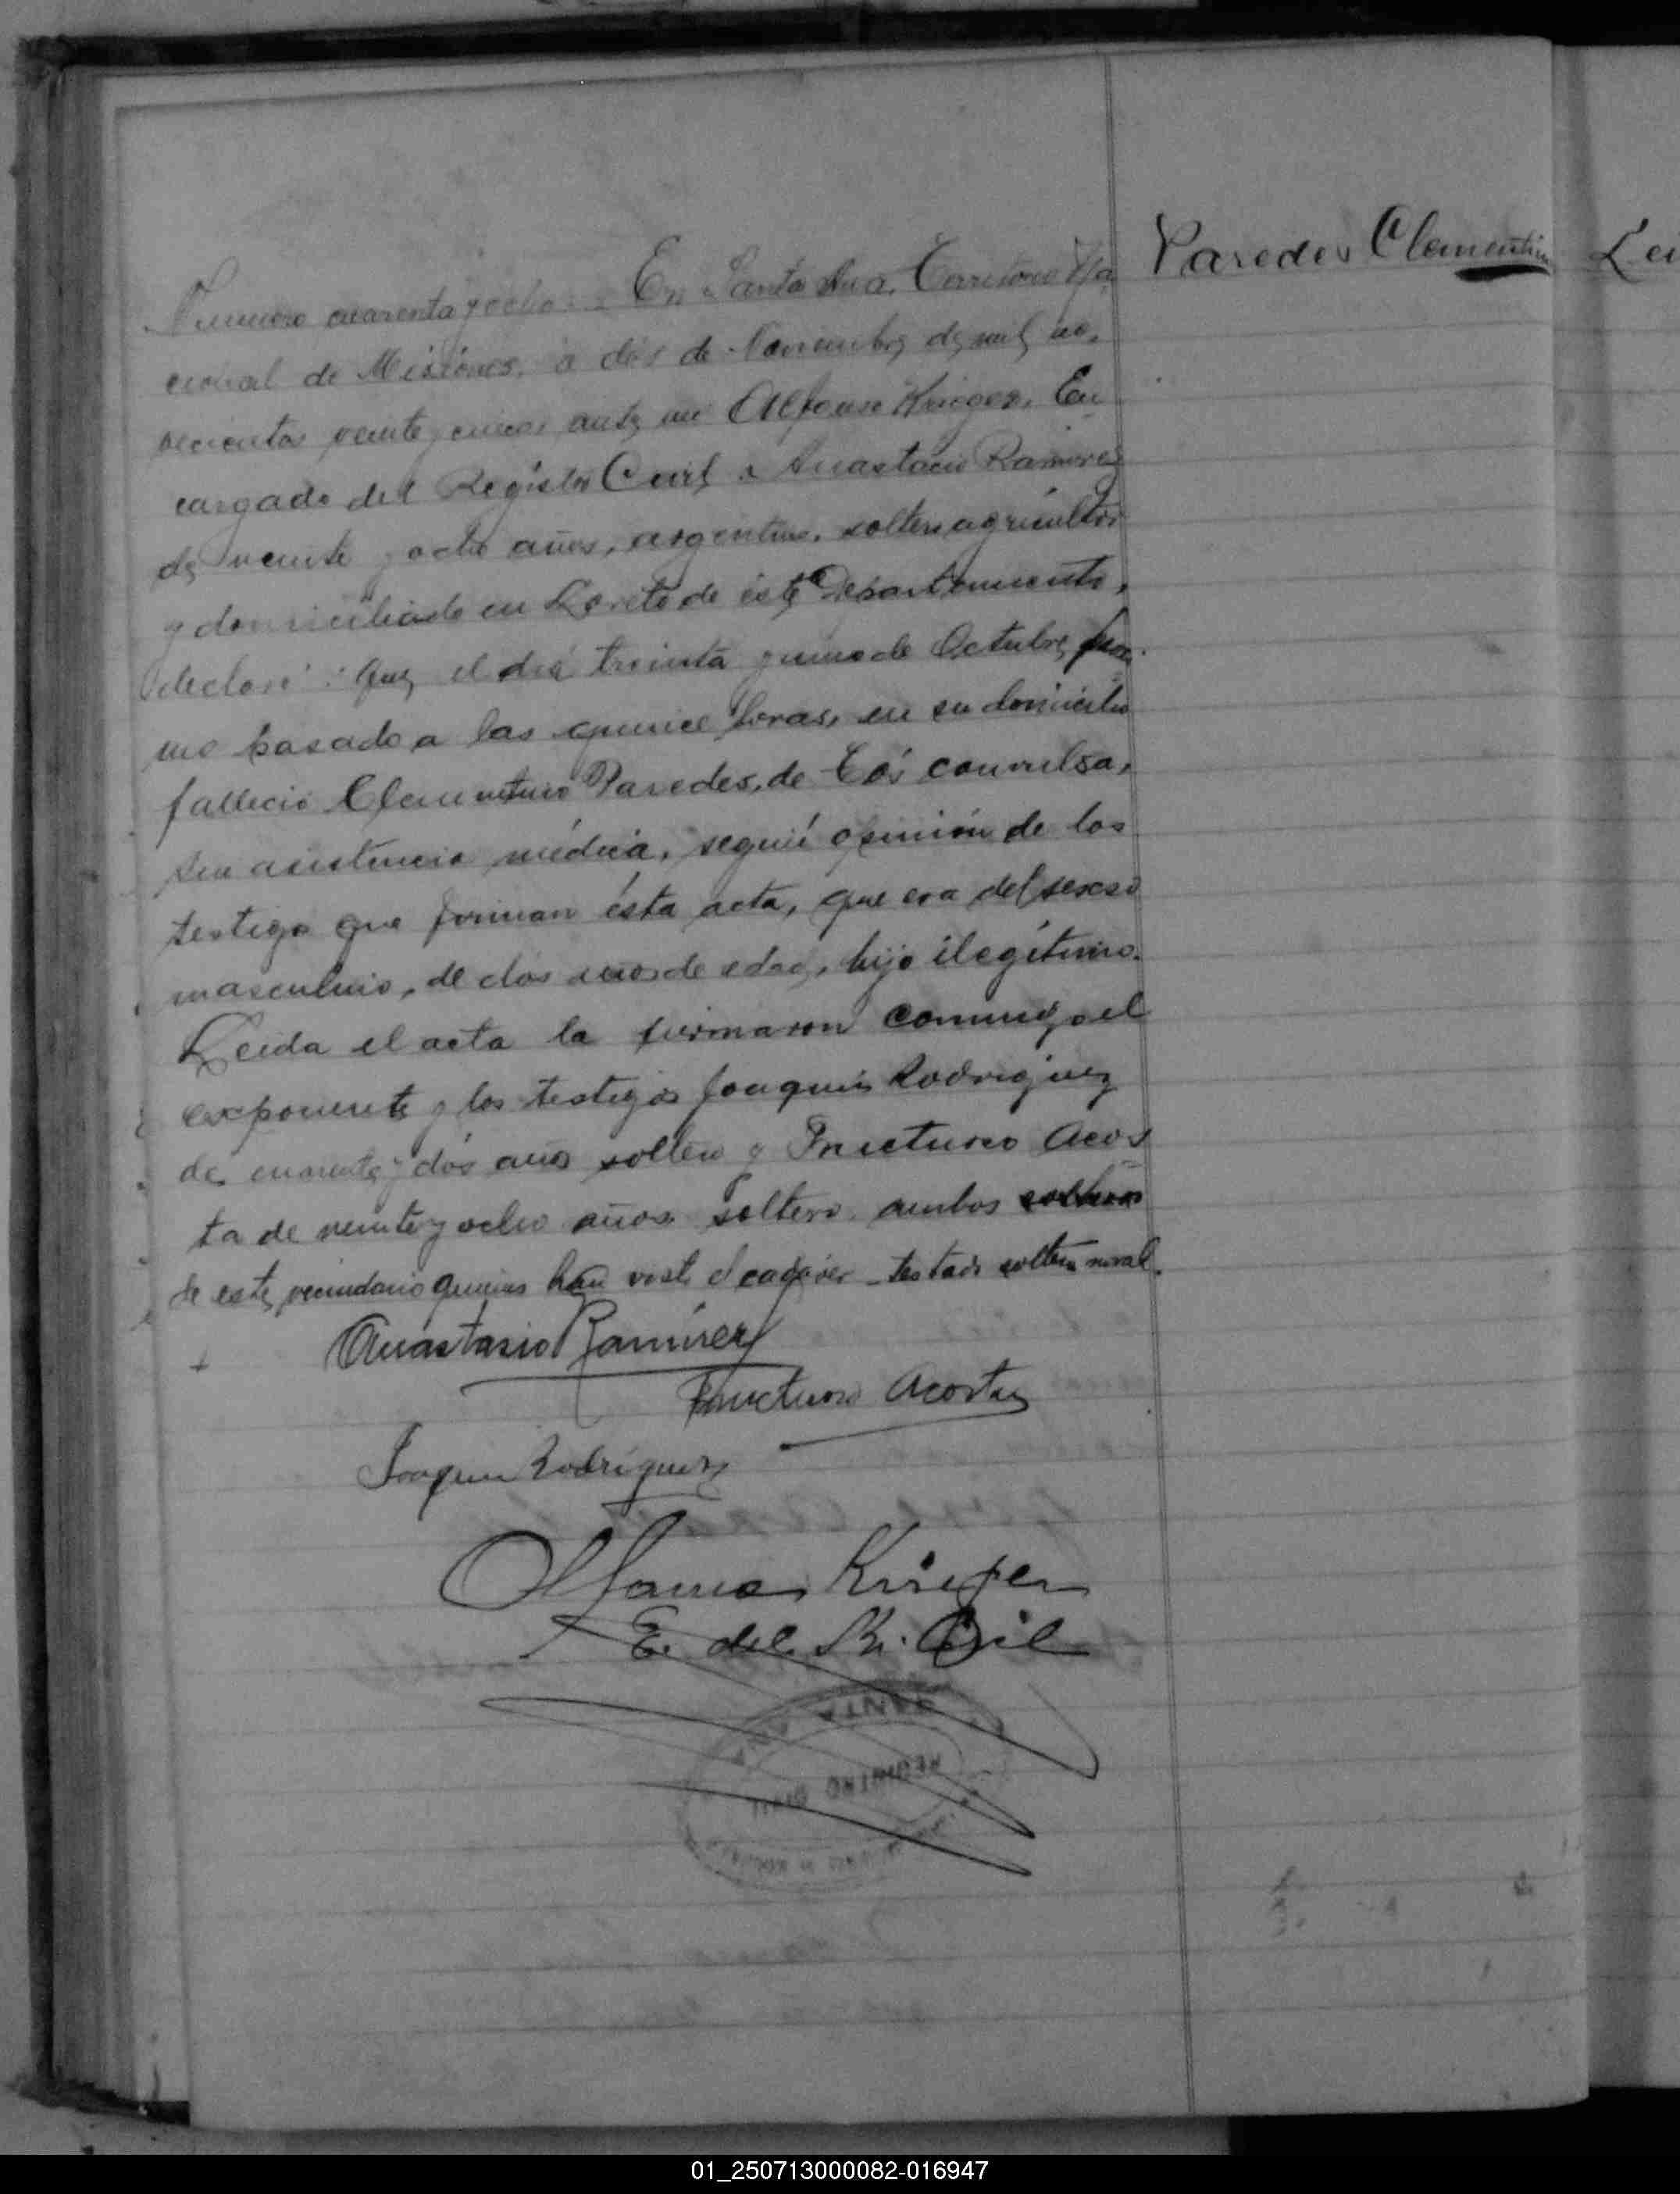 Paredes Clementin
Lei
Numero cuarenta y ocho.- En Santa Ana, Territorio Na
cional de Misiones, a dós de Noviembre de mil no-
vecientos veinte y cinco, ante mi Alfonso Krieger, En
cargado del Registro Civil, Anastacio Ramirez
de veinte y ocho años, argentino, soltero agricultor
y domiciliado en Loreto de éste Departamento,
declaró: Que, el día treinta y uno de Octubre, proxi
mo pasado a las quince horas, en su domicilio
falleció Clementino Paredes, de Tós convulsa,
sin asistencia médica, segun opinión de los
testigo que firman ésta acta, que era del sexso
masculino, de dós años de edad, hijo ilegítimo.
Leida el acta la firmaron conmigo el
exponente y los testigos Joaquin Rodriguez
de cuarenta y dós años soltero y Fructuoso Acos
ta de veinte y ocho años soltero, ambos solteros
de este vecindario quienes han visto el cadáver testado soltero
Anastasio Ramirez
Fructuoso Acosta
Joaquin Rodriguez
Alfonso Krieger
E. del R. Civil
SANTA ANA
REGISTRO CIVIL
01_250713000082-016947